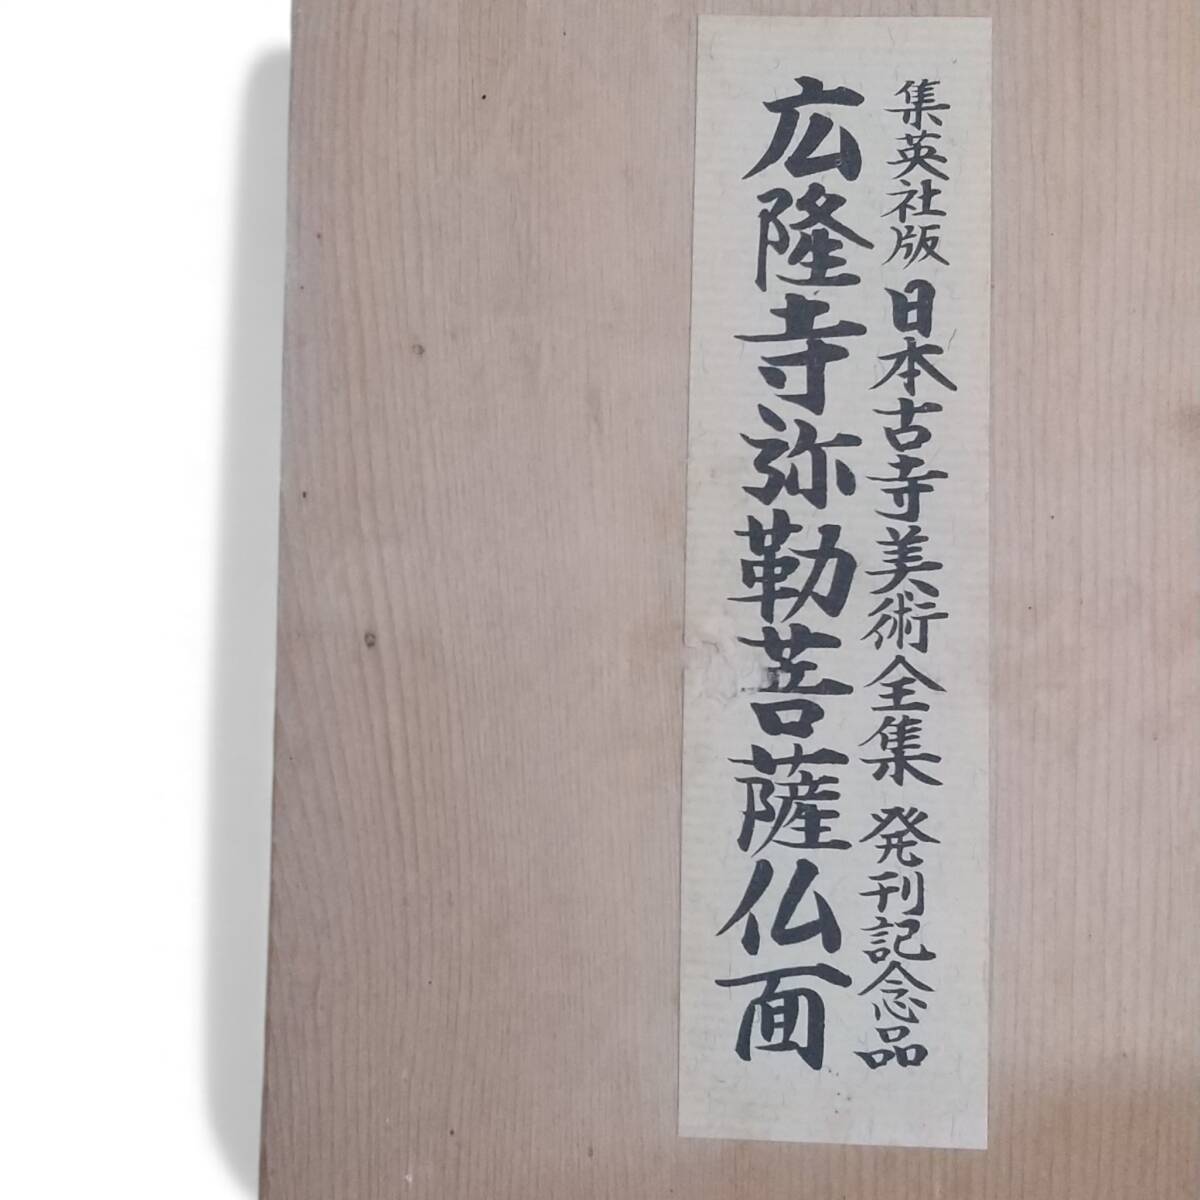 集英社版 日本古寺美術全集 発刊記念品
広隆寺弥勒菩薩仏面